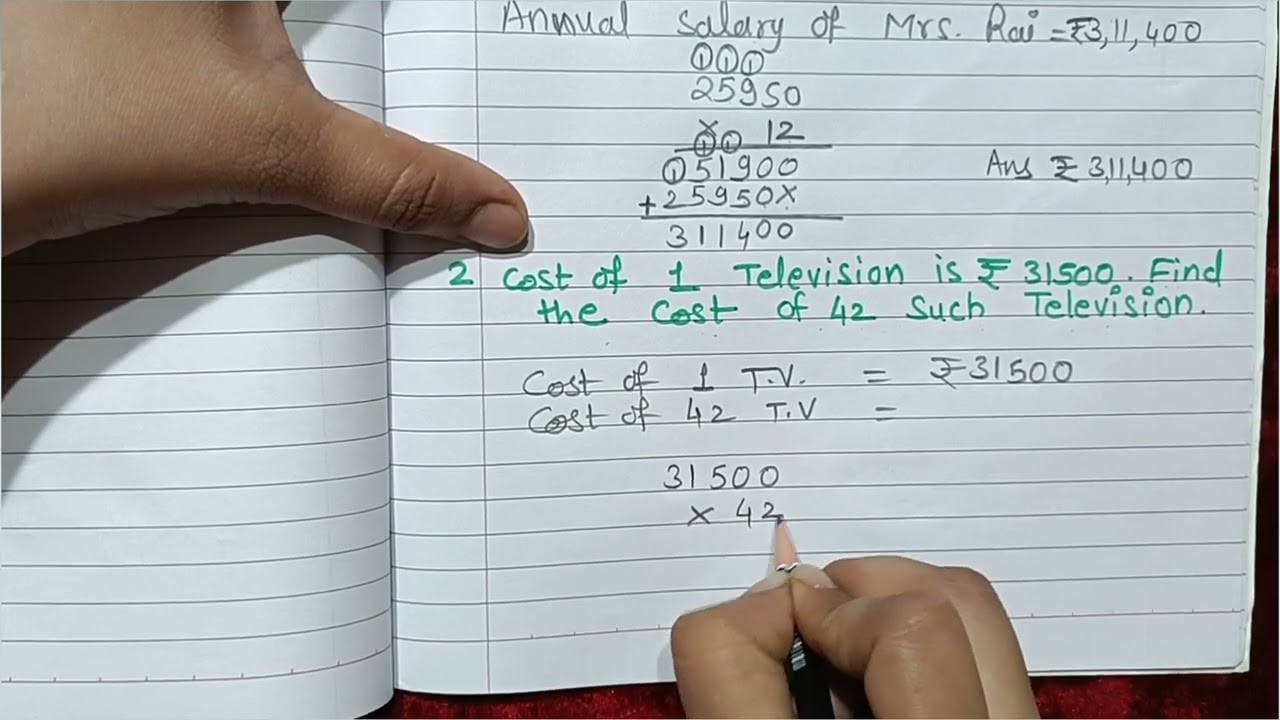 Annual Salary of Mrs. Rai = ₹3,11,400
1 1 1
25950
x 1 1 12
1 51900
Ans ₹ 3,11,400
+ 25950x
311400
2 Cost of 1 Television is ₹ 31500. Find
the Cost of 42 Such Television.
Cost of 1 T.V. = ₹31500
Cost of 42 T.V =
31500
x 42